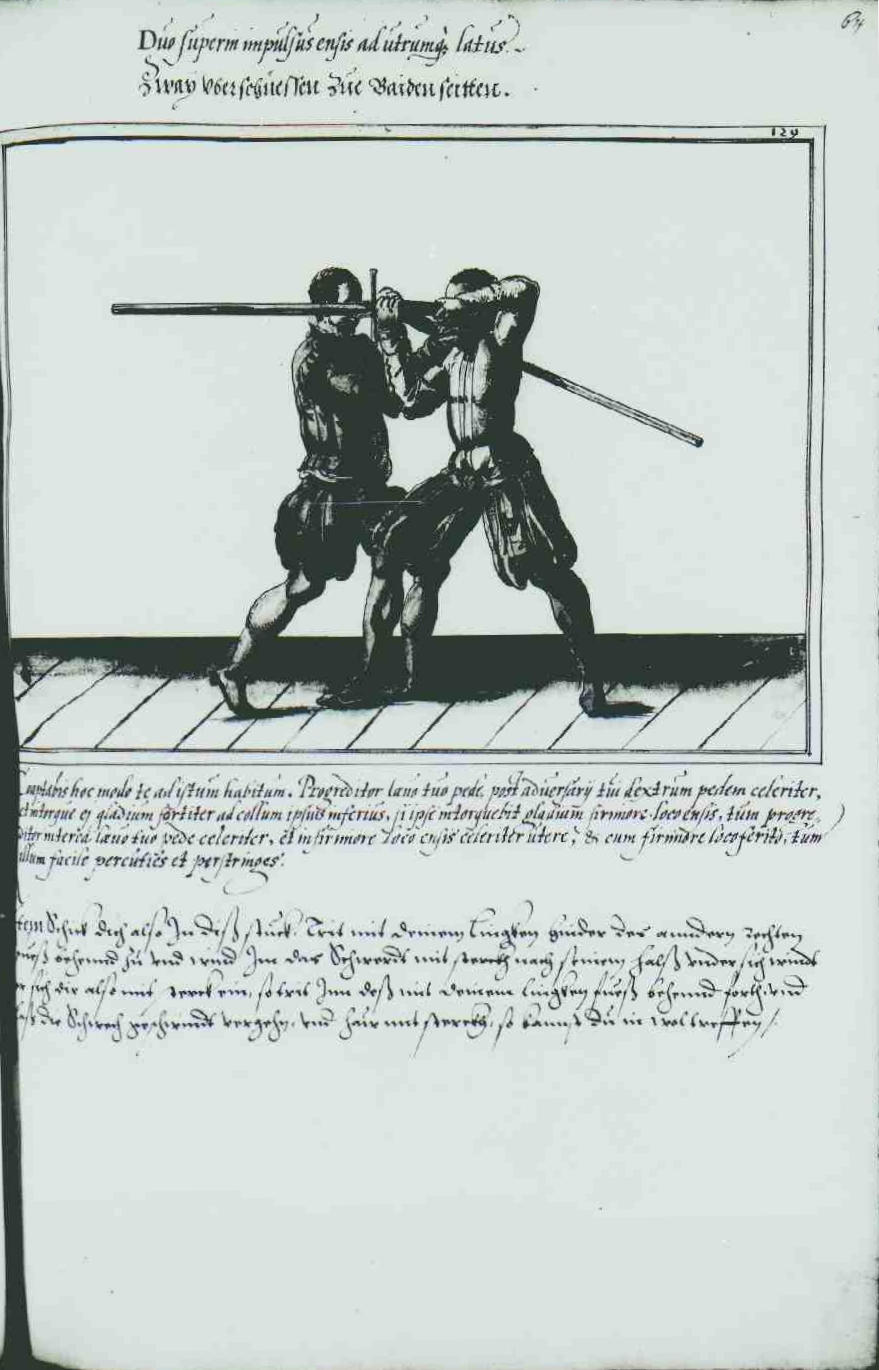 64
Duo superni impulsus ensis ad utrumq; latus.
Zway Uberschiessen Zue Baiden seitten.
129
Coaptabis hoc modo te ad istum habitum. Progreditor lævo tuo pede, post adversarij tui dextrum pedem celeriter,
et intorque ej gladium fortiter ad collum ipsius inferius, si ipse intorquebit gladium firmiore loco ensis, tum progre,
ditor interea lævo tuo pede celeriter, et infirmiore loco ensis celeriter utere, & cum firmiore loco ferito, tum
illum facile percuties et perstringes.
Item Schick dich also In diß stuck Trit mit deinem Lingken hinder des anndern rechten
fueß behennd zu vnd wind Im das Schwerdt mit sterckh nach seinem halß vnder sich windt
er sich dir also mit sterck ein, so trit Inn deß mit deinem lingken fueß behennd forth, vnd
laß die Schwech geschwindt vergehn, vnd haw mit sterckh, so kannst du in wol treffen